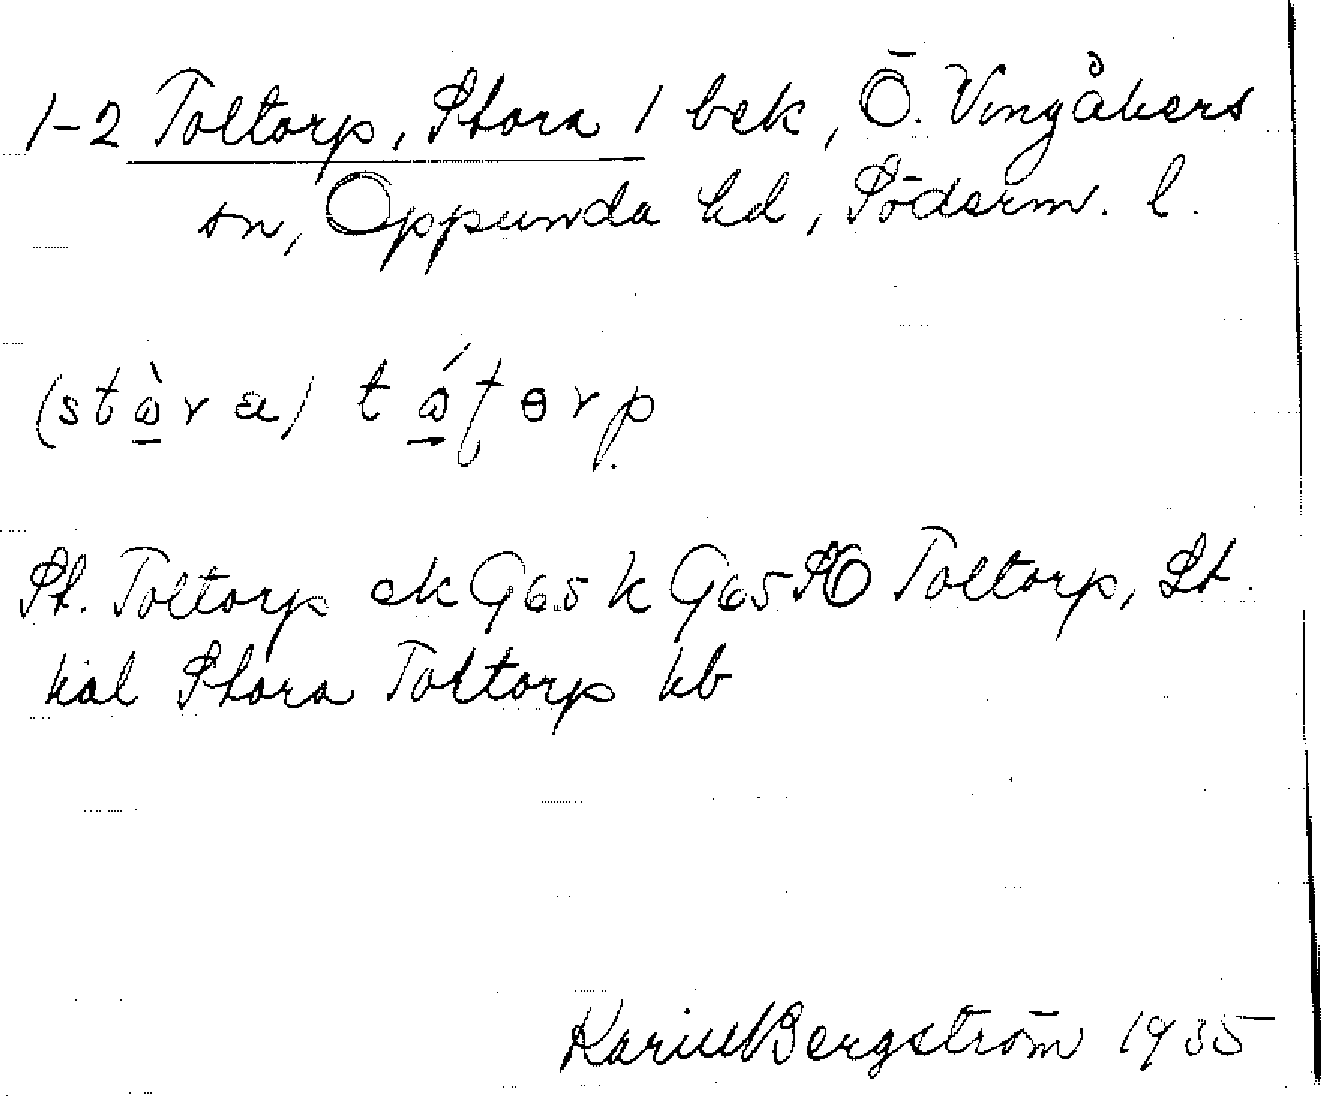 1-2 Toltorp, Stora / bek, Ö. Vingåkers
sn, Oppunda hd, Söderm. l.
(stòra) tó
St. Toltorp ek G65k G65SKO Toltorp, St.
hal Stora Toltorp hb
Karin Bergström 1935